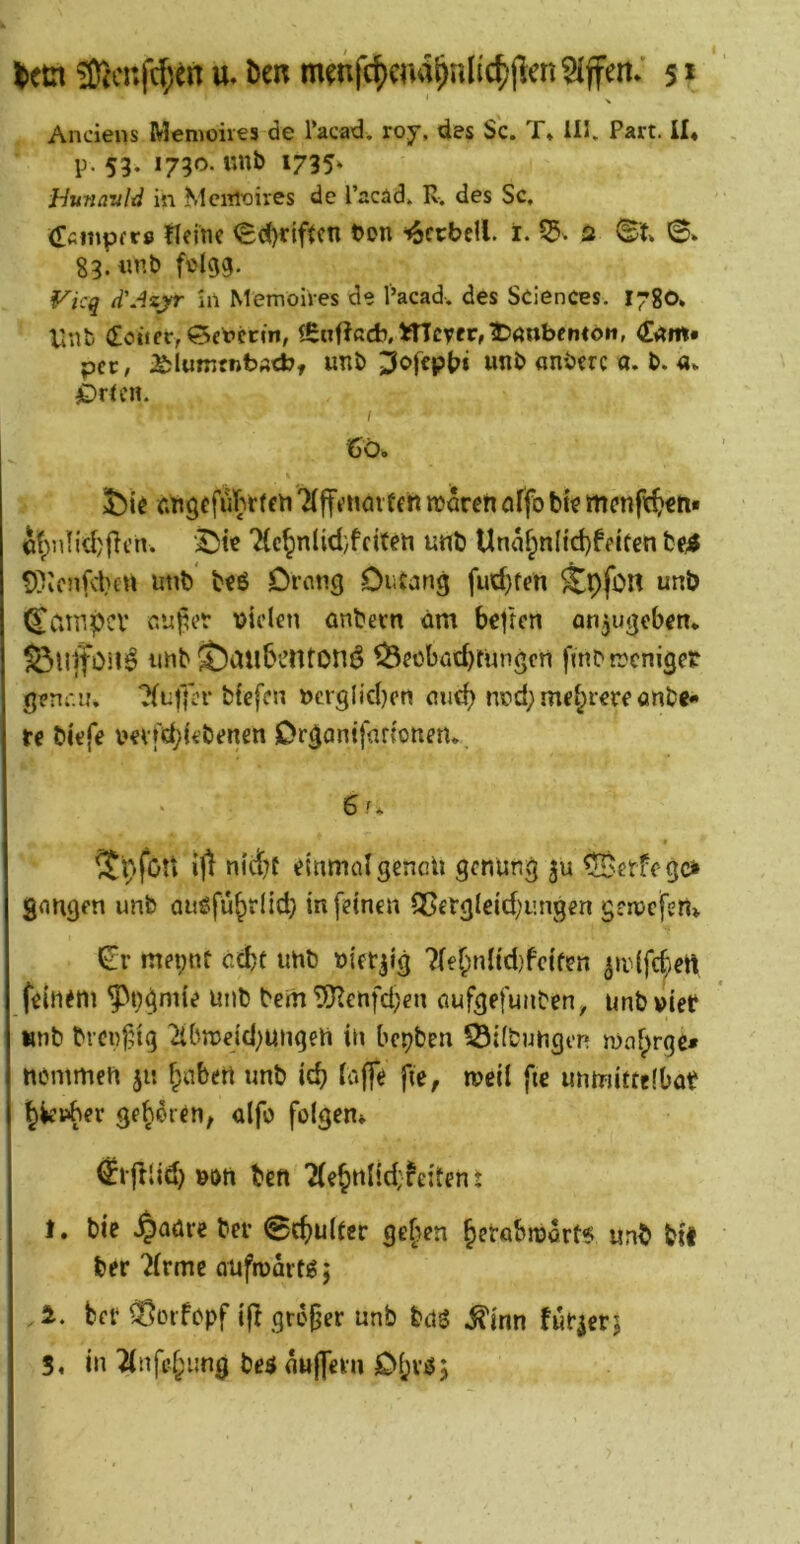 dem Menschen u. den menschenähnlichsten Affen. 51
Anciens Memoires de l'acad. roy. des Sc. T. III. Part. II.
p. 53. 1730. und 1735.
Hunauld in Memoires de l'acad. R. des Sc.
Campers kleine Schriften von Herbell. 1. B. 2 St. S.
83. und folgg.
Vicq d'Azyr in Memoires de l'acad. des Sciences. 1780.
Und Coiter, Severin, Eustach, Meyer, Daubenton, Cam-
per, Blumenbach, und Josephi und andere a. d. a.
Orten.
60.
Die angeführten Affenarten waren also die menschen-
ähnlichsten. Die Aehnlichkeiten und Unähnlichkeiten des
Menschen und des Orang Outang suchten Tyson und
Camper außer vielen andern am besten anzugeben.
Buffons und Daubentons Beobachtungen sind weniger
genau. Ausser diesen verglichen auch noch mehrere ande-
re diese verschiedenen Organisationen.
61.
Tyson ist nicht einmal genau genung zu Werke ge-
gangen und ausführlich in seinen Vergleichungen gewesen.
Er meynt acht und vierzig Aehnlichkeiten zwischen
seinem Pygmie und dem Menschen aufgefunden, und vier
und dreyßig Abweichungen in beyden Bildungen wahrge-
nommen zu haben und ich lasse sie, weil sie unmittelbar
hieher gehören, also folgen.
Erstlich von den Aehnlichkeiten:
1. die Haare der Schulter gehen herabwärts und die
der Arme aufwärts;
2. der Vorkopf ist größer und das Kinn kürzer;
3. in Ansehung des äussern Ohrs;